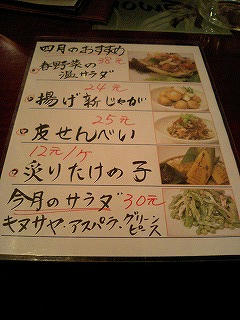 四月のおすすめ
春野菜の 38元
温サラダ
24元
揚げ新じゃが
25元
皮せんべい
12元/1ヶ
炙りたけの子
今月のサラダ 30元
キヌサヤ・アスパラ・グリーン
ピース